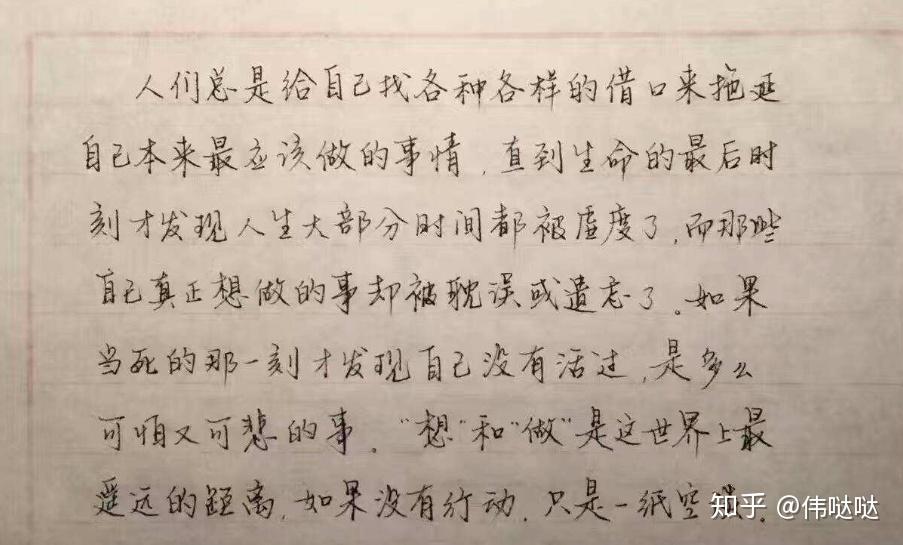 人们总是给自己找各种各样的借口来拖延
自己本来最应该做的事情,直到生命的最后时
刻才发现人生大部分时间都被虚度了,而那些
自己真正想做的事却被耽误或遗忘了。如果
当死的那一刻才发现自己没有活过,是多么
可惧又可悲的事。“想”和“做”是这世界上最
遥远的距离,如果没有行动,只是一纸空
知乎 @伟哒哒